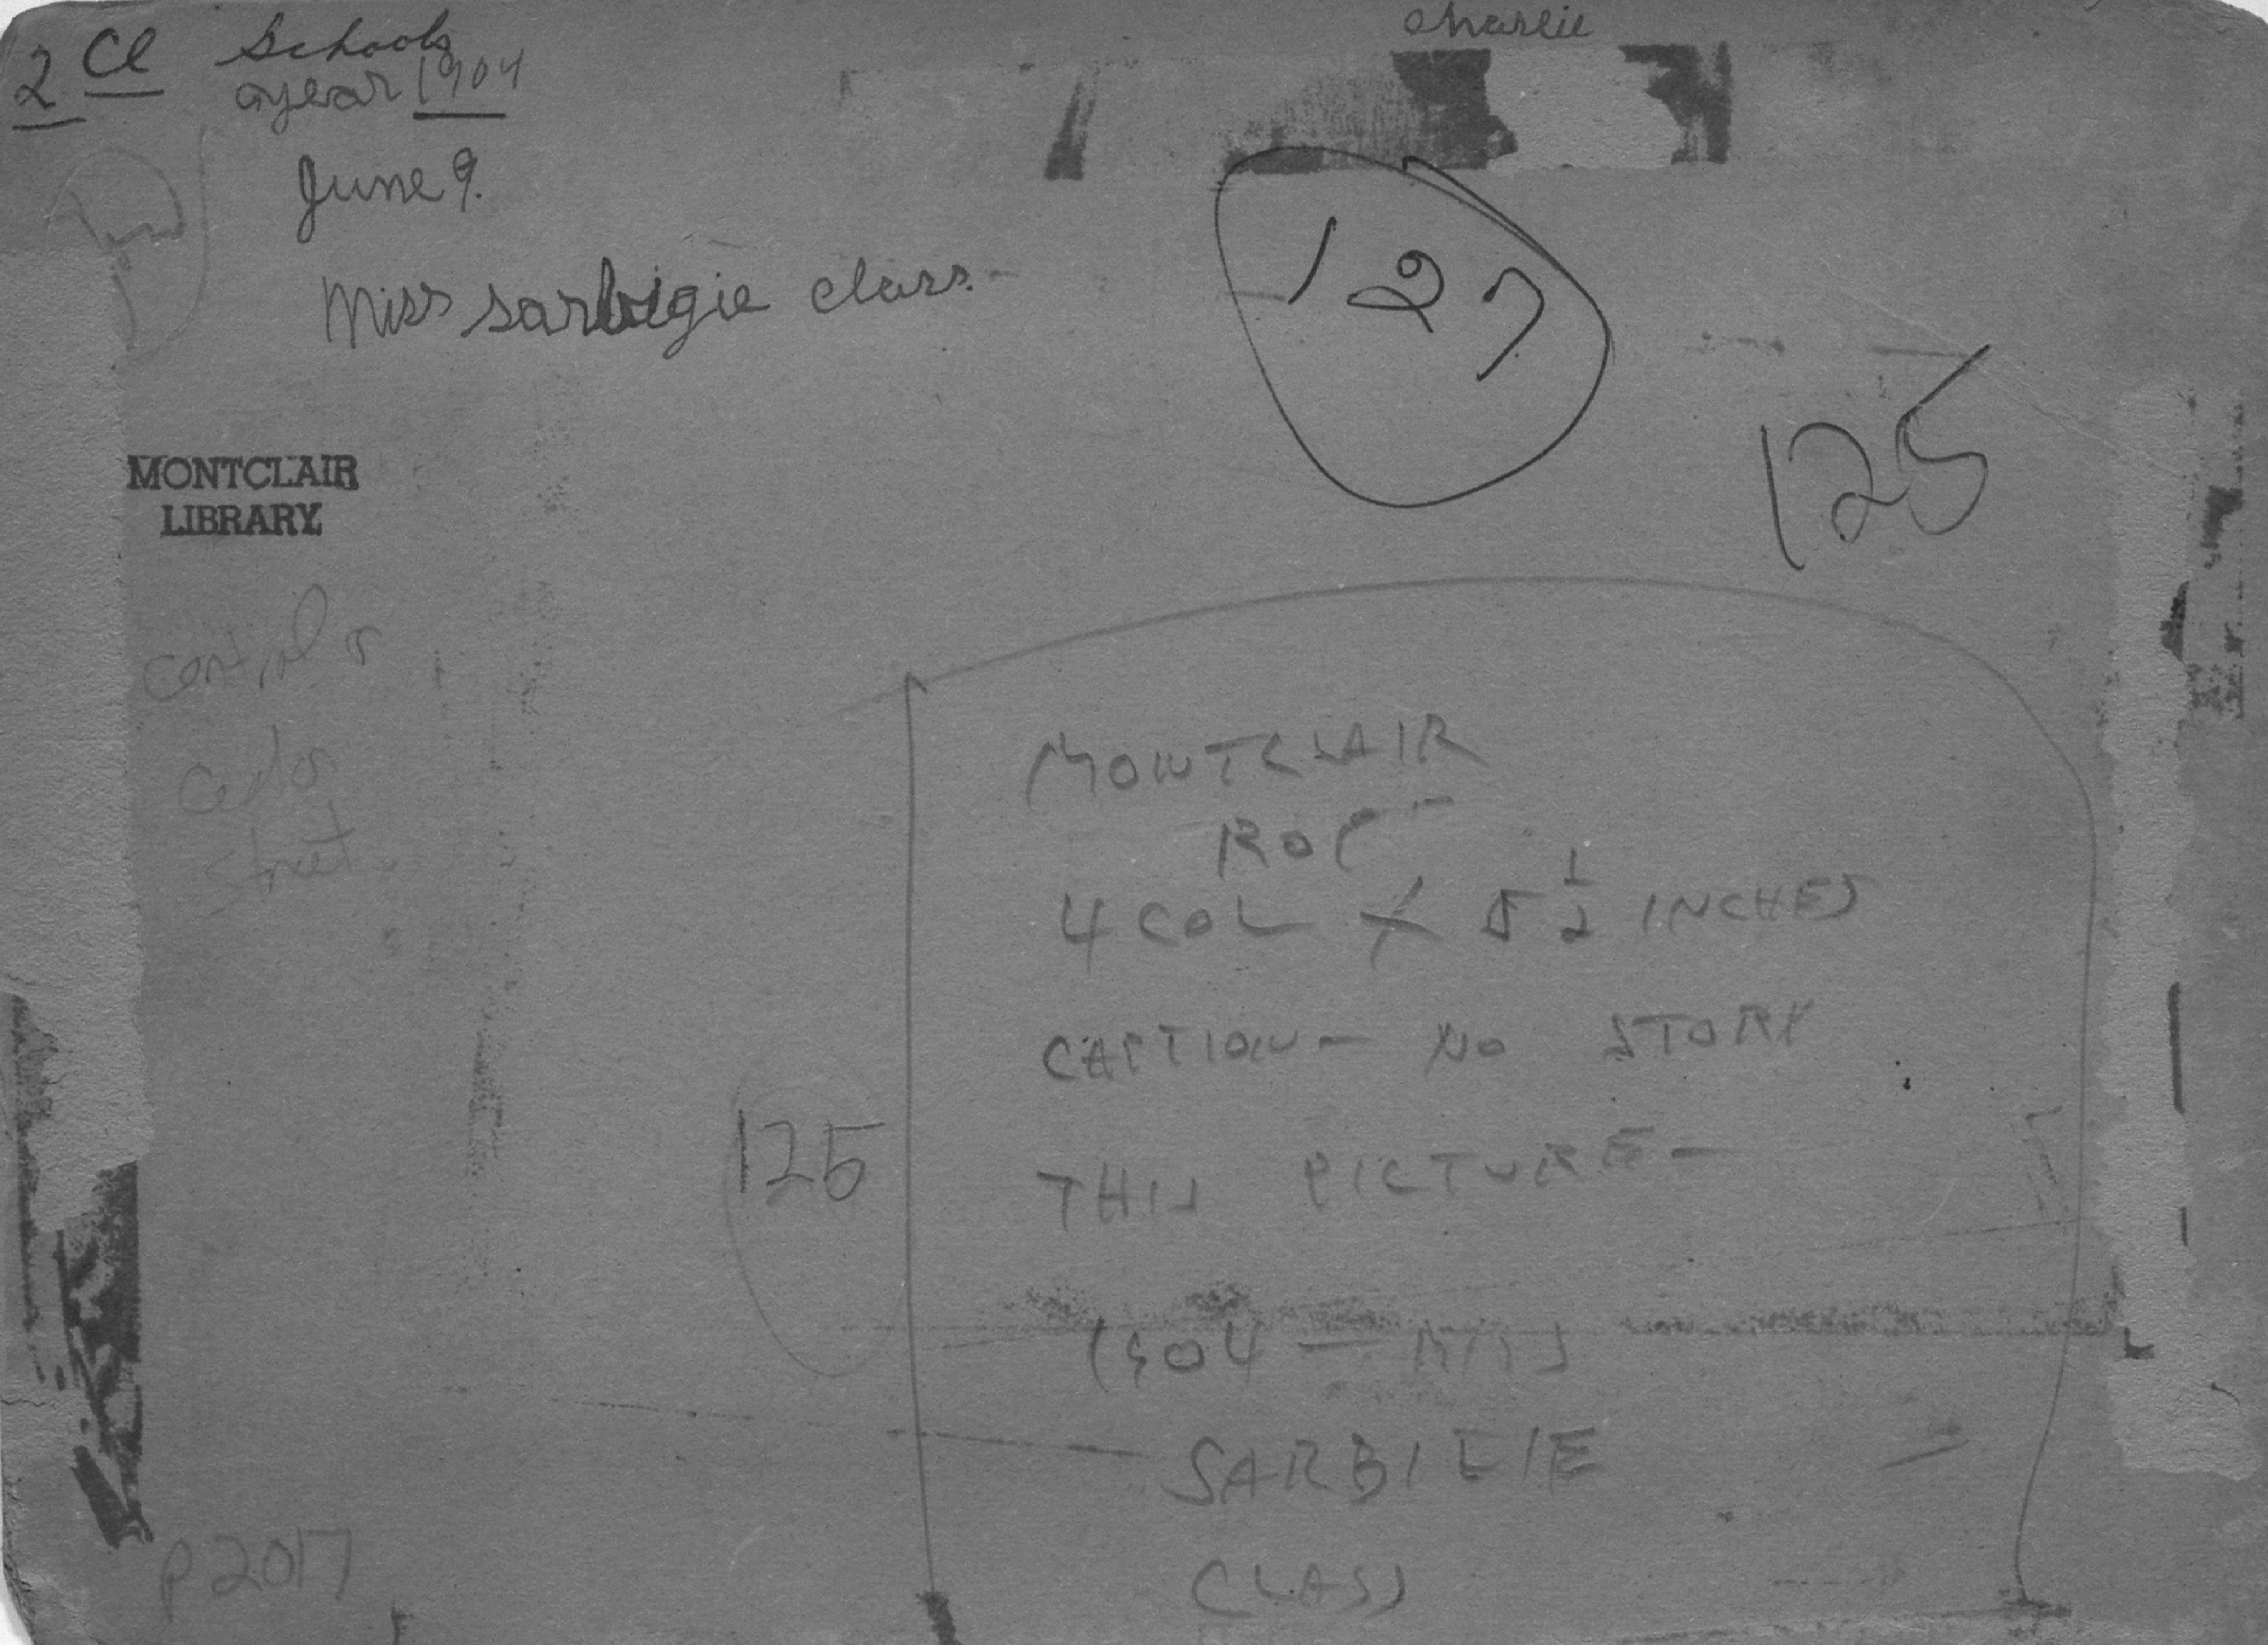 2 Cl Schools
year 1904
June 9.
Miss sarbigie class.
Charlie
127
125
MONTCLAIR
LIBRARY
Central or
Cedar
Street
MONTCLAIR
4 COL X 5 1/2 INCHES
CAPTION - NO STORY
THIS PICTURE -
125
1904 - MISS
SARBIGIE
CLASS
P2017